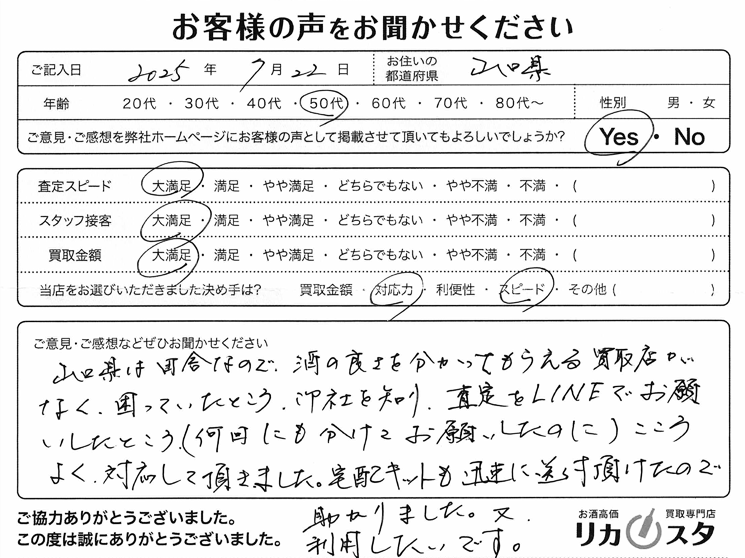 お客様の声をお聞かせください
ご記入日 2025 年 7 月 22 日 お住いの都道府県 山口県
年齢 20代 ・ 30代 ・ 40代 ・ 50代 ・ 60代 ・ 70代 ・ 80代〜 性別 男 ・ 女
ご意見・ご感想を弊社ホームページにお客様の声として掲載させて頂いてもよろしいでしょうか? Yes ・ No
査定スピード 大満足 ・ 満足 ・ やや満足 ・ どちらでもない ・ やや不満 ・ 不満 ・ ( )
スタッフ接客 大満足 ・ 満足 ・ やや満足 ・ どちらでもない ・ やや不満 ・ 不満 ・ ( )
買取金額 大満足 ・ 満足 ・ やや満足 ・ どちらでもない ・ やや不満 ・ 不満 ・ ( )
当店をお選びいただきました決め手は? 買取金額 ・ 対応力 ・ 利便性 ・ スピード ・ その他 ( )
ご意見・ご感想などぜひお聞かせください
山口県は田舎なので、酒の良さを分かってもらえる買取店が
なく、困っていたところ、御社を知り、査定をLINEでお願
いしたところ、(何回にも分けてお願いしたのに)こころ
よく、対応して頂きました。宅配キットも迅速に送って頂けたので
助かりました。又、
利用したいです。
ご協力ありがとうございました。
この度は誠にありがとうございました。
お酒高価 買取専門店
リカスタ